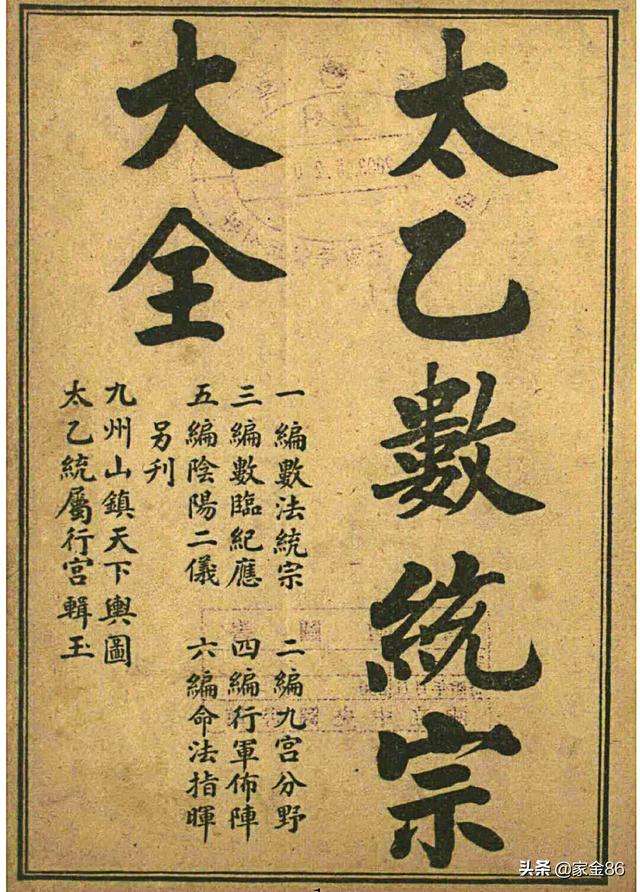 太乙數統宗
大全
一編數法統宗　二編九宮分野
三編數臨紀應　四編行軍佈陣
五編陰陽二儀　六編命法指暉
另刋
九州山鎮天下輿圖
太乙統屬行宮輯玉
头条 @家金86